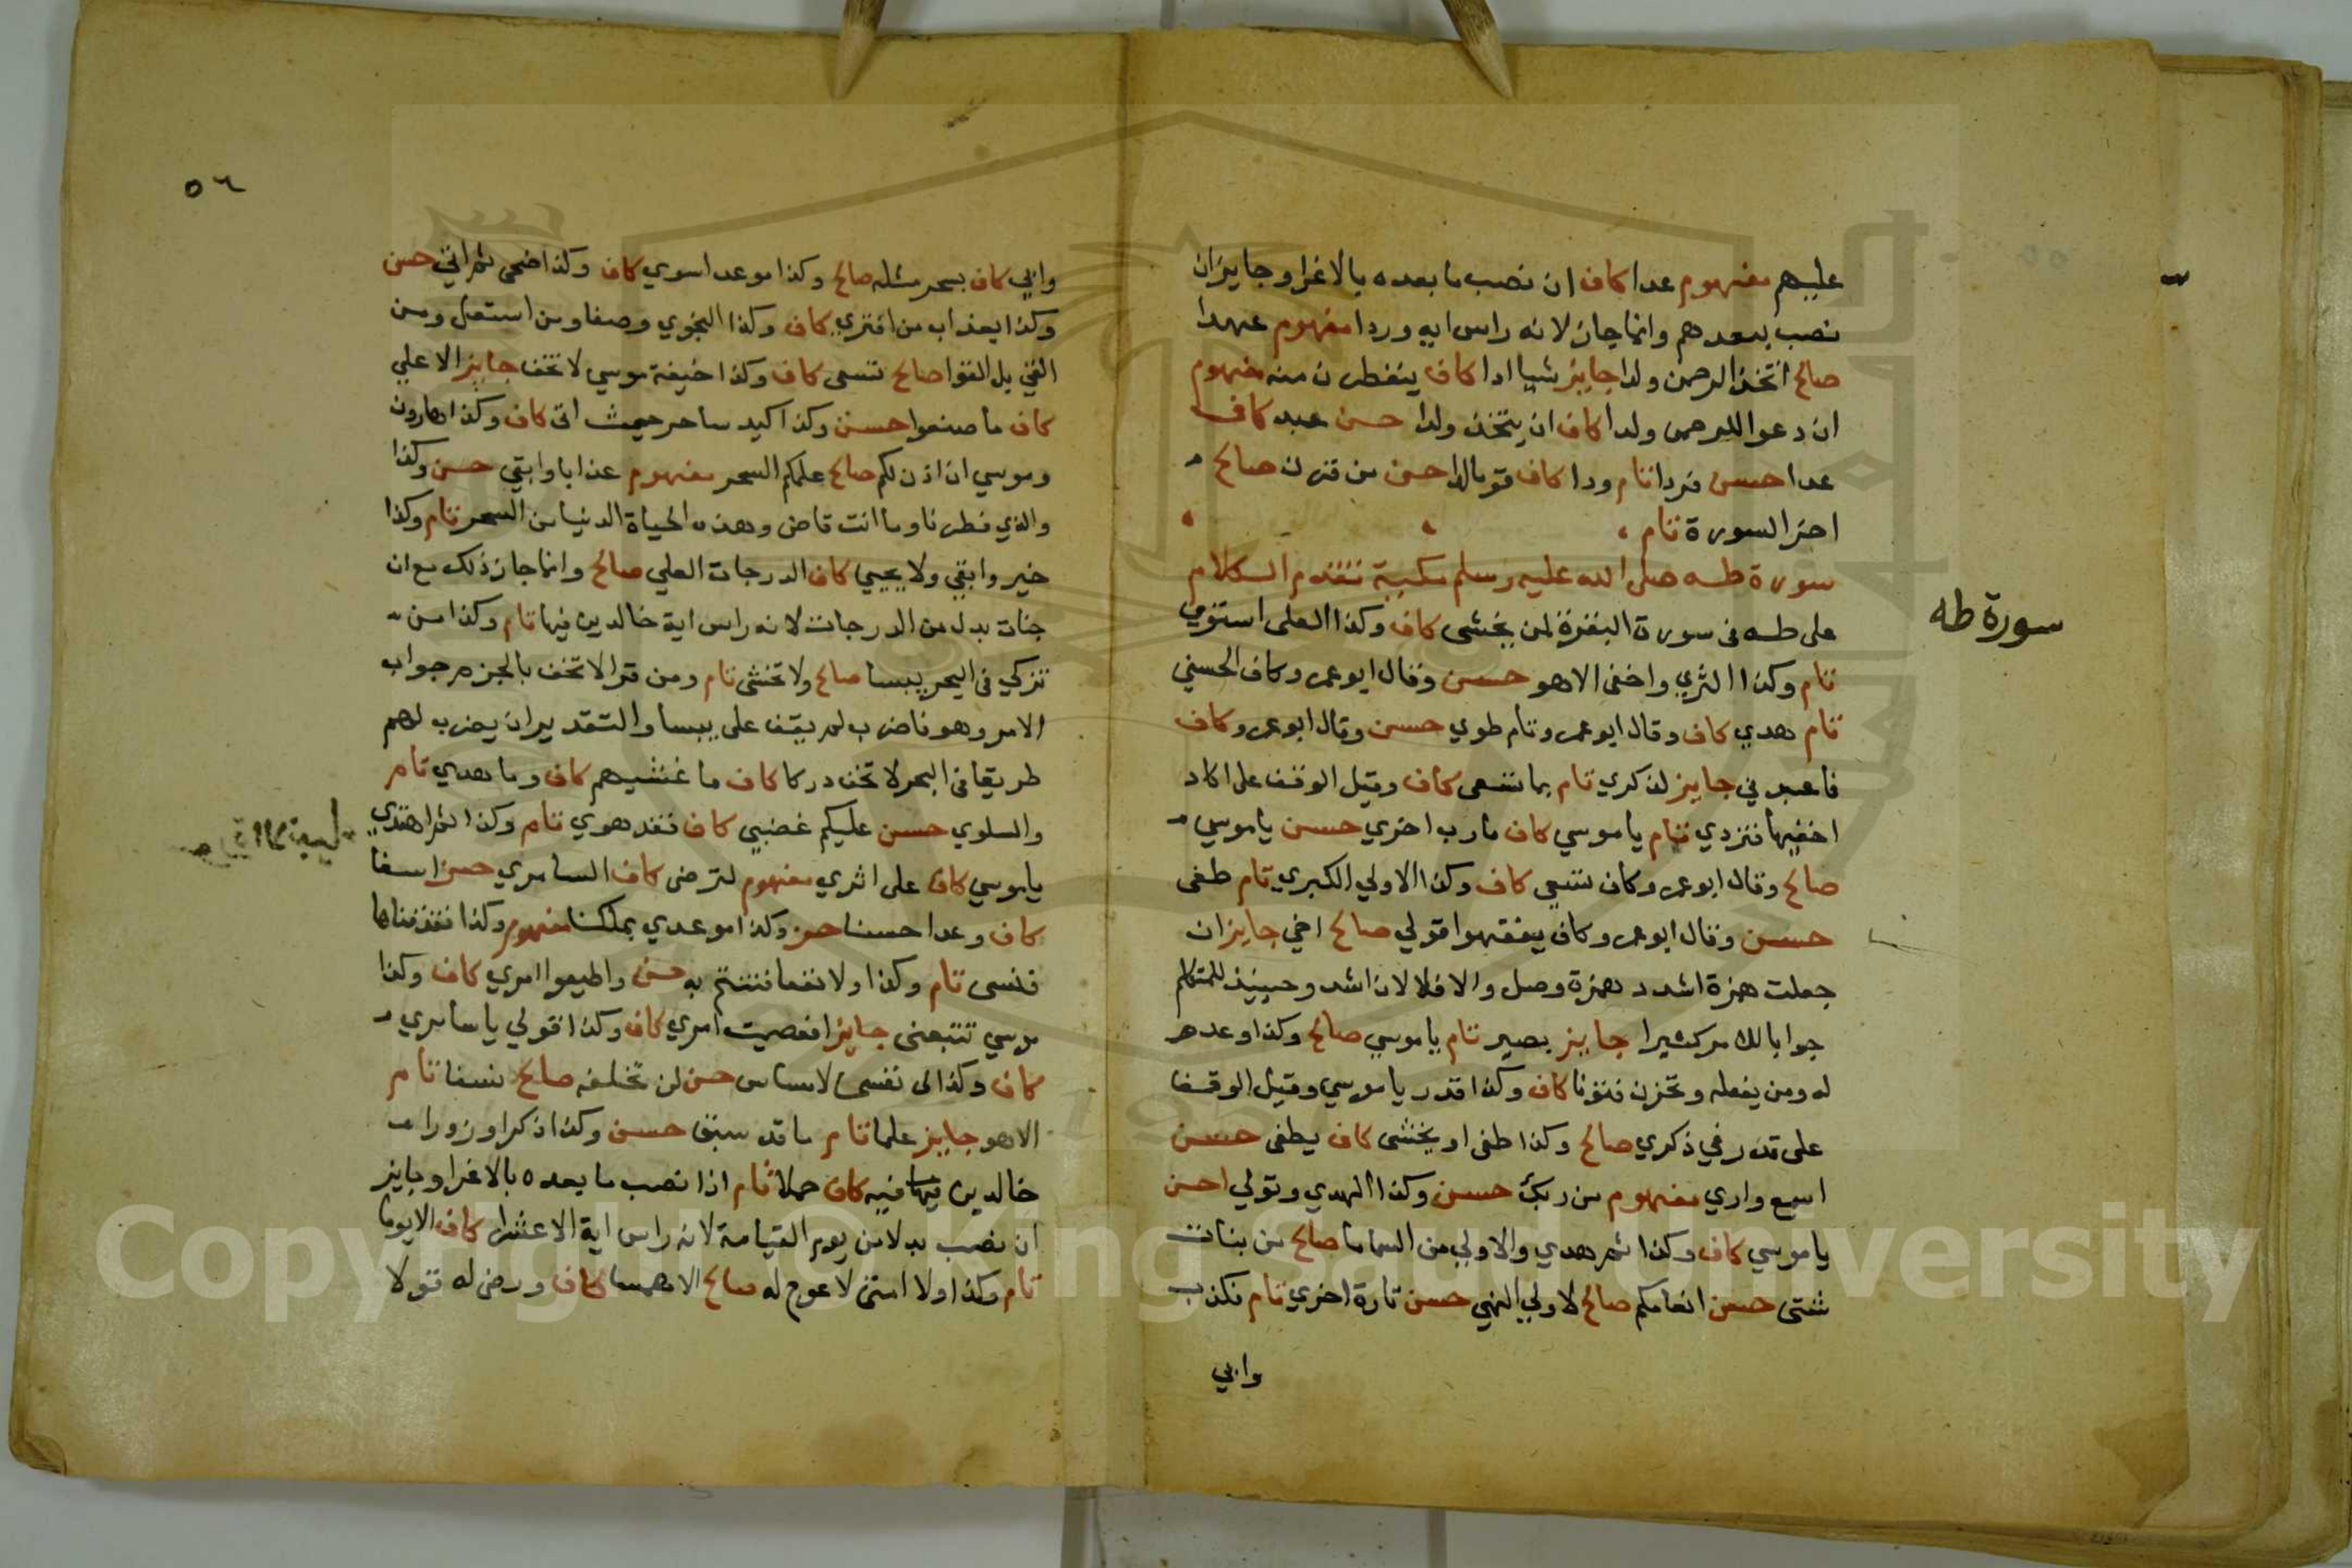 عليهم مفهوم عدا كاف ان نصب ما بعده بالاغرا وجايز ان
نصب بمعدهم وانما جاز لانه راس ايه وردا مفهوم عهدا
صالح اتخذ الرحمن ولدا جايز شيا ادا كاف يتفطرن منه مفهوم
ان دعوا للرحمن ولدا كاف ان يتخذ ولدا حسن عبد كاف
عدا حسن فردا تام ودا كاف قوما لدا حسن من قرن صالح
اخر السورة تام
سورة طه صلى الله عليه وسلم مكية تقدم الكلام
على طه في سورة البقرة لمن يخشى كاف وكذا العلى استوي
تام وكذا الثري واخفى الا هو حسن وقال ابو عمرو كاف الحسني
تام هدي كاف وقال ابو عمرو تام طوي حسن وقال ابو عمرو كاف
فاعبدني جايز لذكري تام بما تسعى كاف وقيل الوقف على اكاد
اخفيها فتردي تام ياموسي كاف مارب اخري حسن ياموسي
صالح وقال ابو عمرو كاف تسعى كاف وكذا الاولي الكبري تام طغى
حسن وقال ابو عمرو كاف يفقهوا قولي صالح اخي جايز ان
جعلت همزة اشدد همزة وصل والا فلا لان اشدد وحينيذ للمتكلم
جوابا للامر كثيرا جايز بصير تام ياموسي صالح وكذا وعدو
له ومن يكفله وتحزن فتونا كاف وكذا قدر ياموسي وقيل الوقف
على قدر في ذكري صالح وكذا طغى او يخشى كاف يطغى حسن
اسمع واري مفهوم من ربك حسن وكذا الهدي وتولي احسن
ياموسي كاف وكذا ثم هدي والاولي من السما ما صالح من نبات
شتى حسن انعامكم صالح لاولي النهي حسن تارة اخري تام فكذب
وابي
سورة طه
٥٦
وابي كاف بسحر مثله صالح وكذا موعدا سوي كاف وكذا ضحى ثم اتي حسن
وكذا بعذاب من افتري كاف وكذا النجوي وصفا ومن استعلى ومن
القي بل القوا صالح تسعى كاف وكذا خيفة موسي لا تخف جايز الاعلي
كاف ما صنعوا حسن وكذا كيد ساحر حيث اتى كاف وكذا هارون
وموسي ان اذن لكم صالح علمكم السحر مفهوم عذابا وابقي حسن وكذا
والذي فطرنا وما انت قاض وهذه الحياة الدنيا من السحر تام وكذا
خير وابقي ولا يحيي كاف الدرجات العلي صالح وانما جاز ذلك مع ان
جنات بدل من الدرجات لانه راس اية خالدين فيها تام وكذا من
تزكي في البحر يبسا صالح ولا تخشى تام ومن قرا لا تخف بالجزم جواب
الامر وهو فاضرب لم يقف على يبسا والتقدير ان يضرب لهم
طريقا في البحر لا تخف دركا كاف ما غشيهم كاف وما هدي تام
والسلوي حسن عليكم غضبي كاف فقد هوي تام وكذا ثم اهتدي
ياموسي كاف على اثري مفهوم لترضى كاف السامري حسن اسفا
كاف وعدا حسنا حسن وكذا موعدي بملكنا مفهوم وكذا فقذفناها
فنسى تام وكذا ولا نفعا فتنتم به حسن واطيعوا امري كاف وكذا
موسي تتبعني جايز افعصيت امري كاف وكذا قولي ياسامري
كاف وكذا لى نفسى لا مساس حسن لن تخلفه صالح نسفا تام
الا هو جايز علما تام ما قد سبق حسن وكذا ذكرا وزورا
خالدين فيها فيه كاف حملا تام اذا نصب ما بعده بالاغرا وجايز
ان نصب بدلا من يوم القيامة لانه راس اية الا عشرا كاف الا يوما
تام وكذا ولا امتى لا عوج له صالح الا همسا كاف ورضى له قولا
Copyright © King Saud University